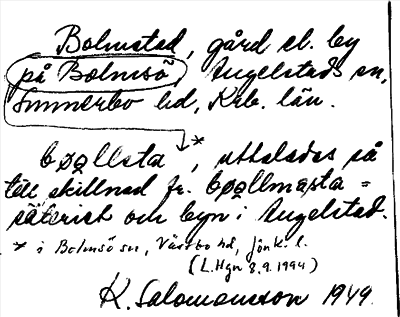 Bolmstad, gård el. by
på Bolmsö, Angelstads sn,
Sunnerbo hd, Krb. län.
bǫllsta *, uttalades så
till skillnad fr. bǫllmasta =
säteriet och byn i Angelstad.
* i Bolmsö sn, Västbo hd, Jönk. l.
(L. Hgn 8.9.1994)
K. Salomonsson 1949.